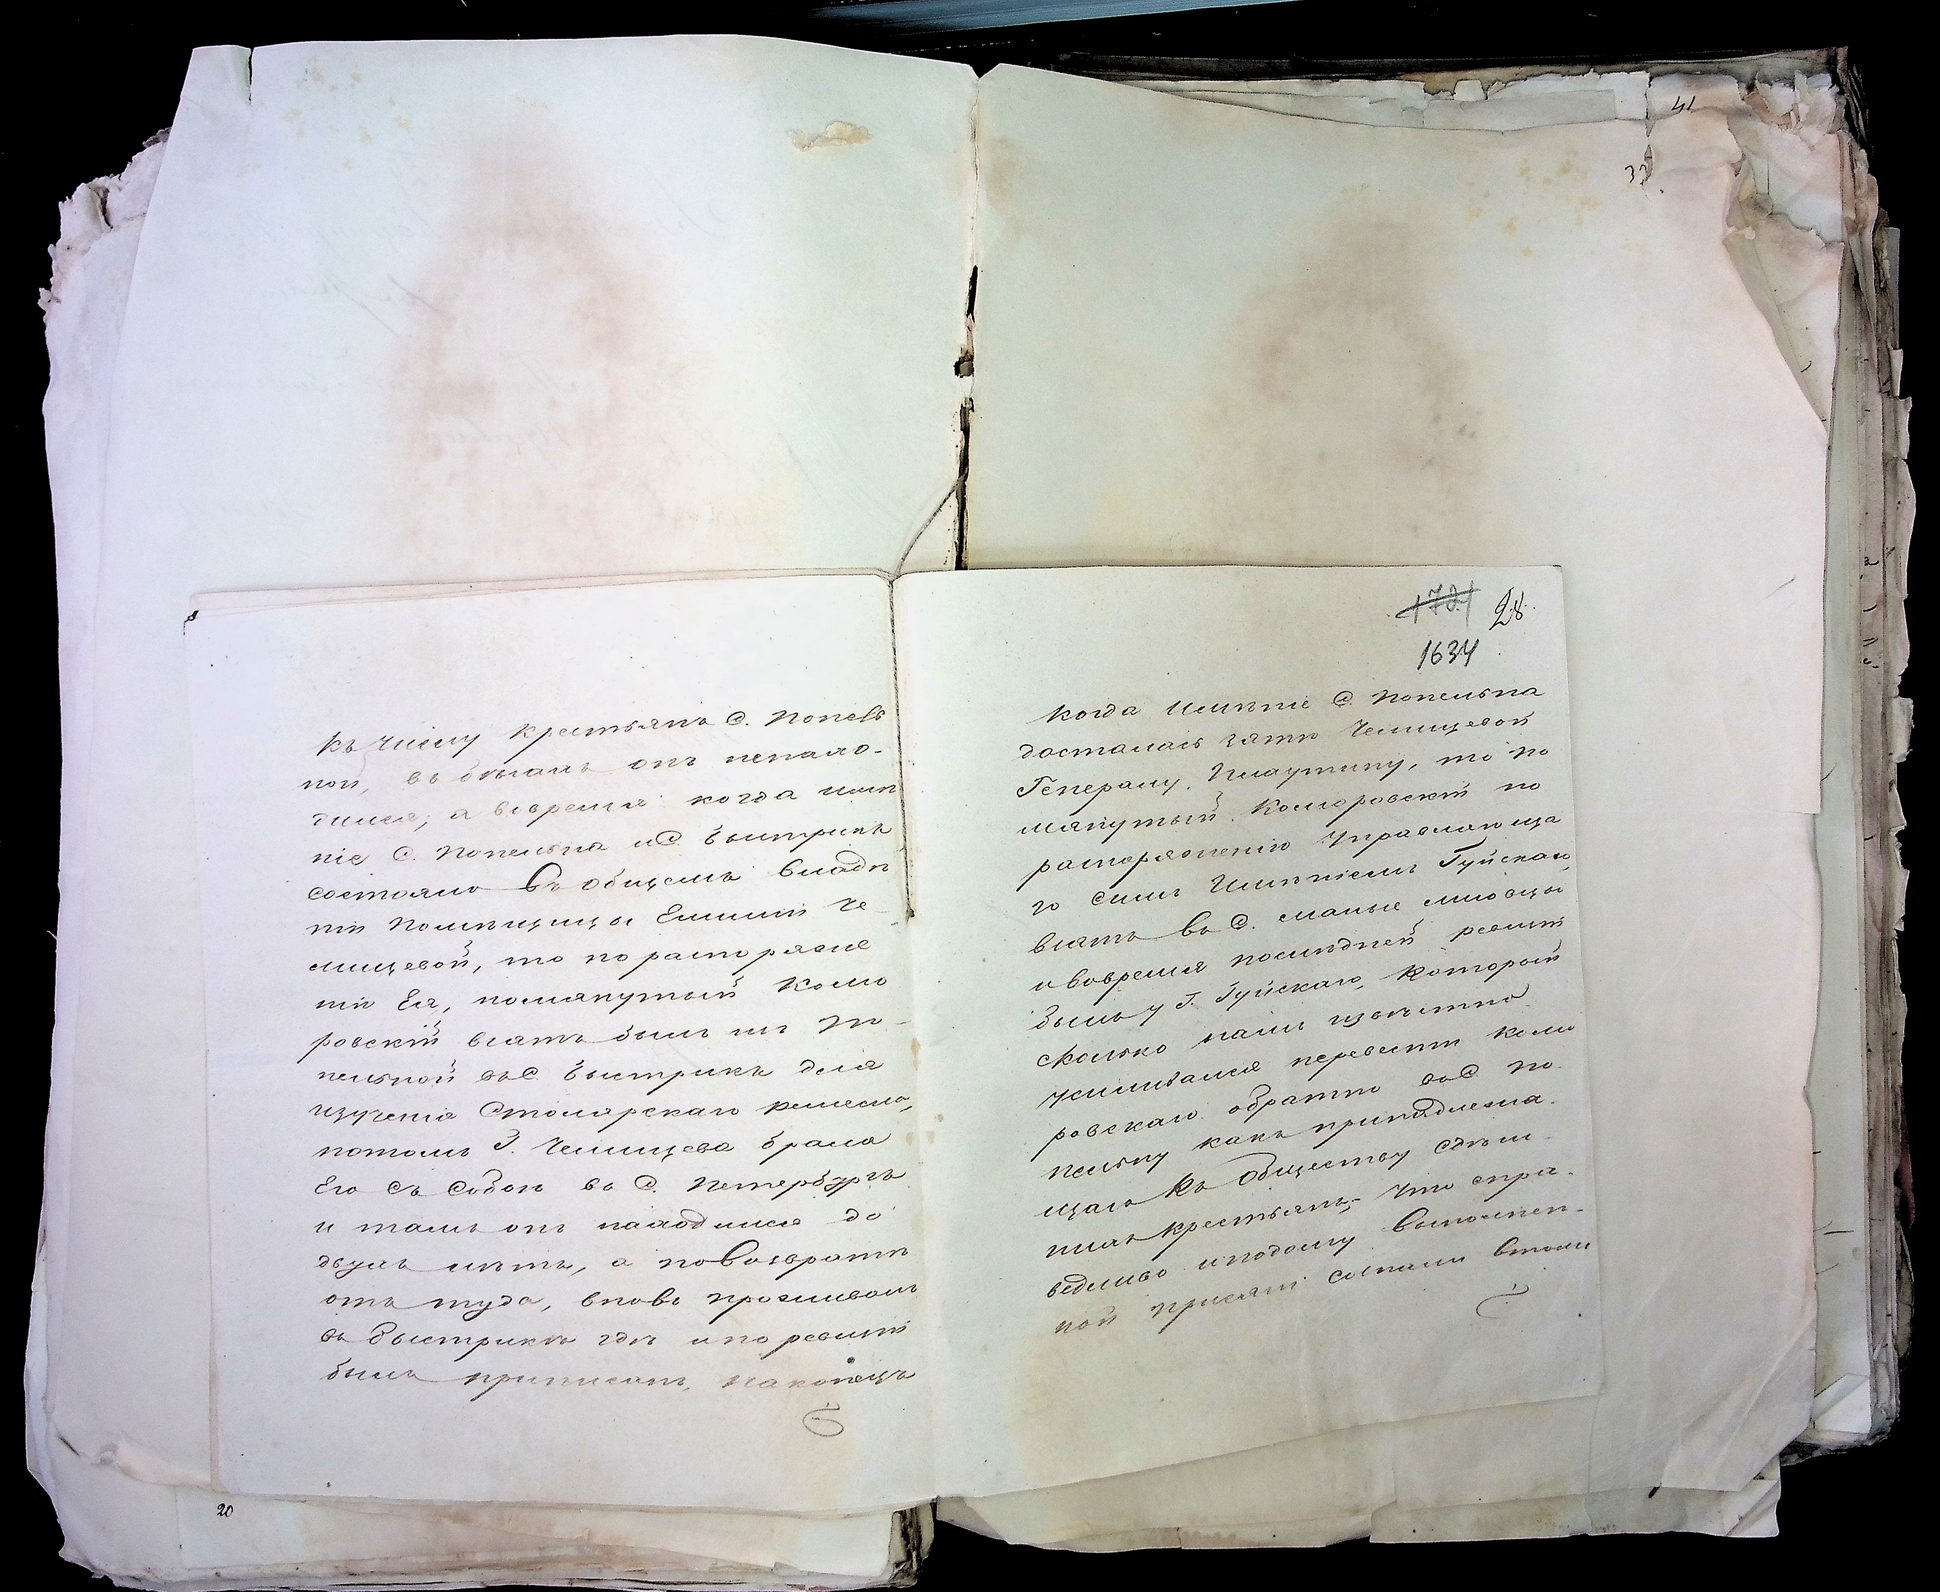 къ числу крестьянъ С. Попель
ной, въ бѣгахъ онъ ненахо-
дился, а вовремя когда имѣ
ніе С. Попельна и С. Быстрикъ
состояло въ общемъ владѣ
ніи Помѣщицы Емиліи Че-
мищевой, то по распоряже
нію Ея, помянутый Комо
ровскій взятъ былъ изъ По-
пельной въ С. Быстрикъ для
изученія Столярскаго ремесла,
потомъ Г. Чемищева брала
Его съ собою въ С. Петербургъ
и тамъ онъ находился до
двухъ лѣтъ, а по возвратѣ
отъ туда, вновь проживалъ
въ Быстрикѣ гдѣ и по ревизіи
былъ приписанъ, наконецъ
1721 28
1634
Когда Имѣніе С. Попельна
досталась зятю Чемищевой
Генералу Плаутину, то по
мянутый Коморовскій по
распоряженію Управляюща
го симъ Имѣніемъ Гуйскаго,
взятъ въ С.
и вовремя послѣдней ревизіи
былъ у Г. Гуйскаго, который
сколько намъ извѣстно
усиливался перевести Комо
ровскаго обратно въ С. По-
пельну какъ принадлежа-
щаго къ Обществу сѣхъ
крестьянъ; Что спра-
ведливо и подому
ной присяги
41
37
20